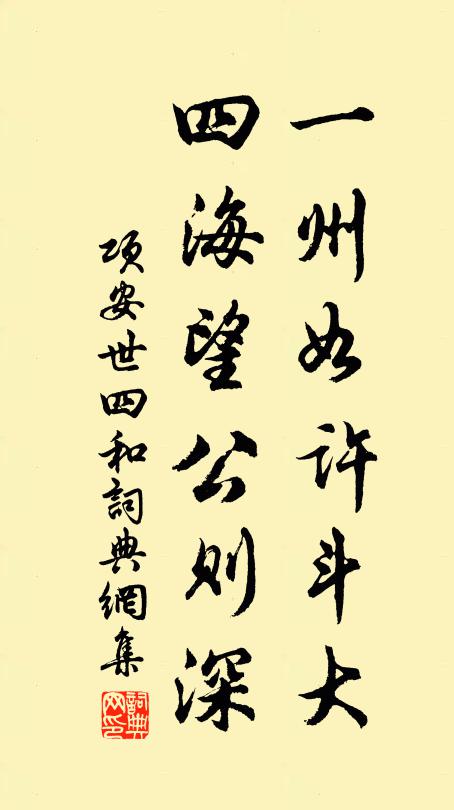 一州如許斗大
四海望公則深
項安世四和詞典網集
詞典網印